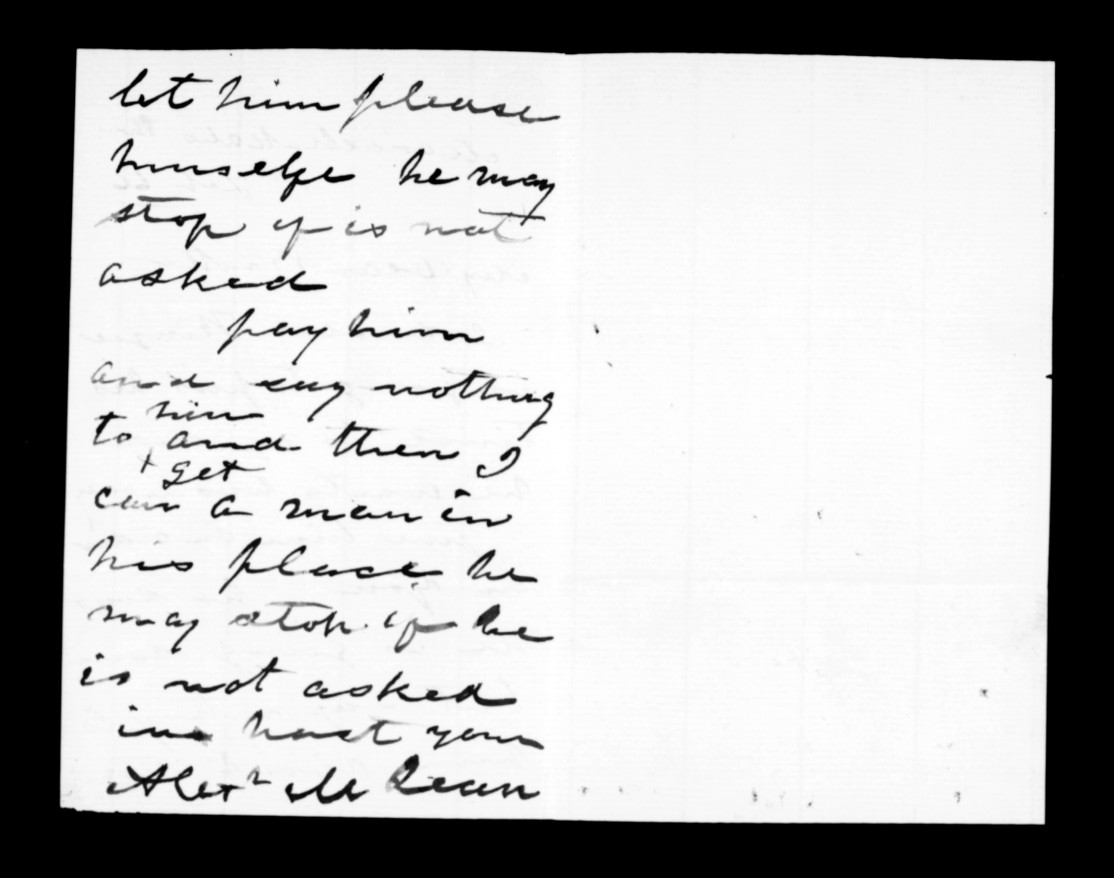 let him please
himselfe he may
stop if is not
asked
pay him
and say nothing
to him and then I
can get a man in
his place he
may stop if he
is not asked
in hast your
Alexr McLean